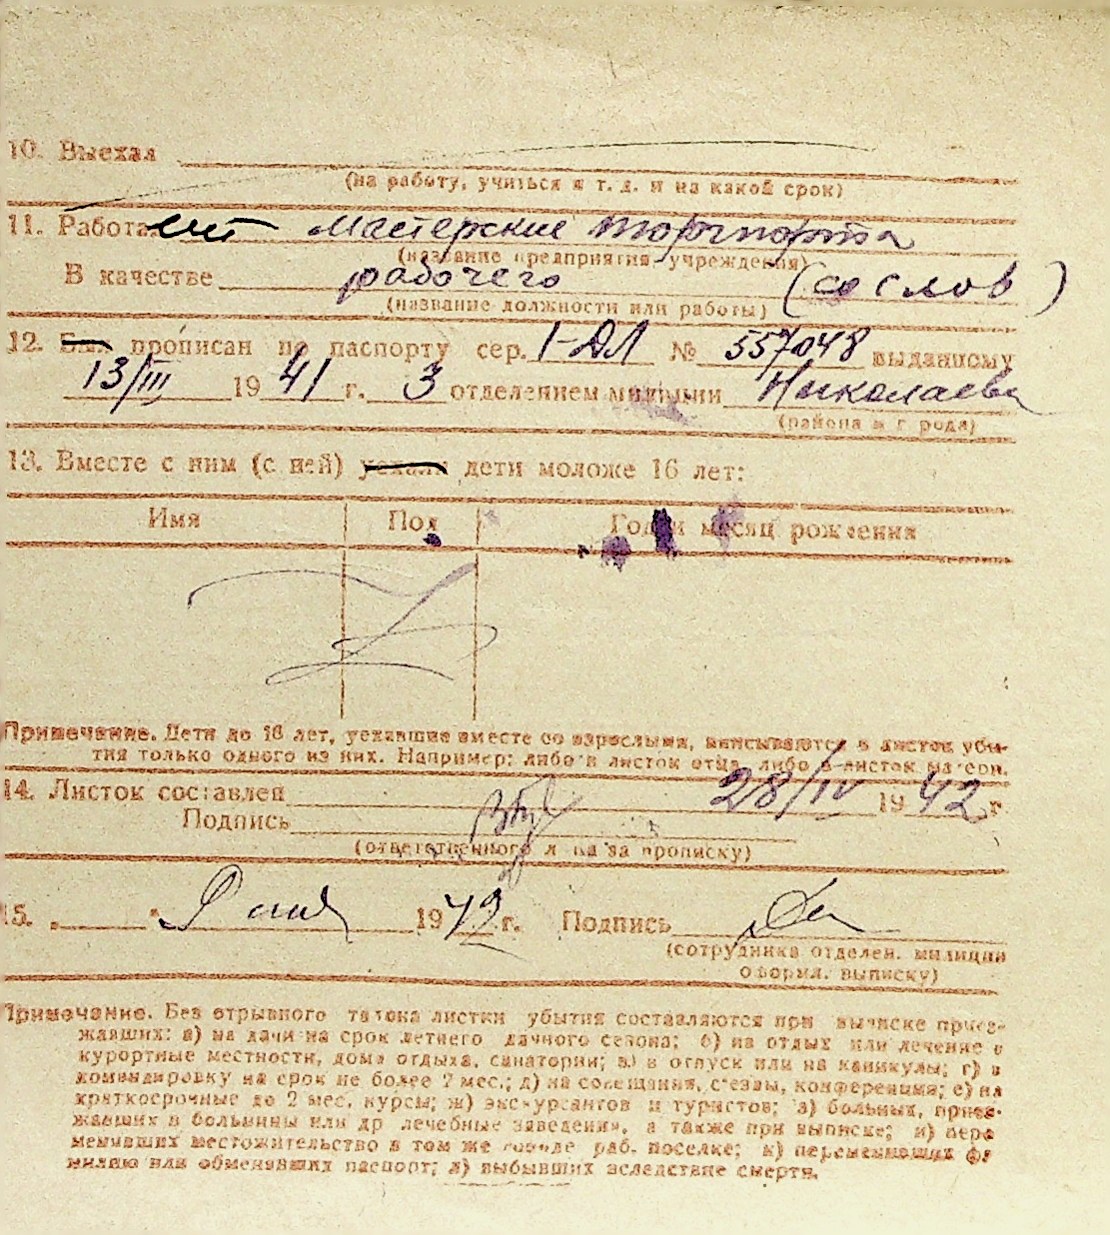 10. Выехал
(на работу, учиться и т. д. и на какой срок)
11. Работает мастерские торгпорта
(название предприятия, учреждения)
В качестве рабочего (со слов)
(название должности или работы)
12. Был прописан по паспорту сер. I-ДЛ № 557048 выданному
13/III 1941 г. 3 отделением милиции Николаева
(района и города)
13. Вместе с ним (с ней) уехали дети моложе 16 лет:
Имя Пол Год и месяц рождения
Примечание. Дети до 16 лет, уехавшие вместе со взрослыми, вписываются в листок убы-
тия только одного из них. Например: либо в листок отца, либо в листок матери.
14. Листок составлен 28/IV 1942 г
Подпись
(ответственного лица за прописку)
15. 1942 г. Подпись
(сотрудника отделен. милиции
оформл. выписку)
Примечание. Без отрывного талона листки убытия составляются при выписке приез-
жавших: а) на дачи на срок летнего дачного сезона; б) на отдых или лечение в
курортные местности, дома отдыха, санатории; в) в отпуск или на каникулы; г) в
командировку на срок не более 2 мес.; д) на совещания, с'езды, конференции; е) на
краткосрочные до 2 мес. курсы; ж) экскурсантов и туристов; з) больных, приез-
жавших в больницы или др лечебные заведения, а также при выписке; и) пере
менивших местожительство в том же городе раб. поселке; к) переменивших фа
милию или обменявших паспорт; л) выбывших вследствие смерти.